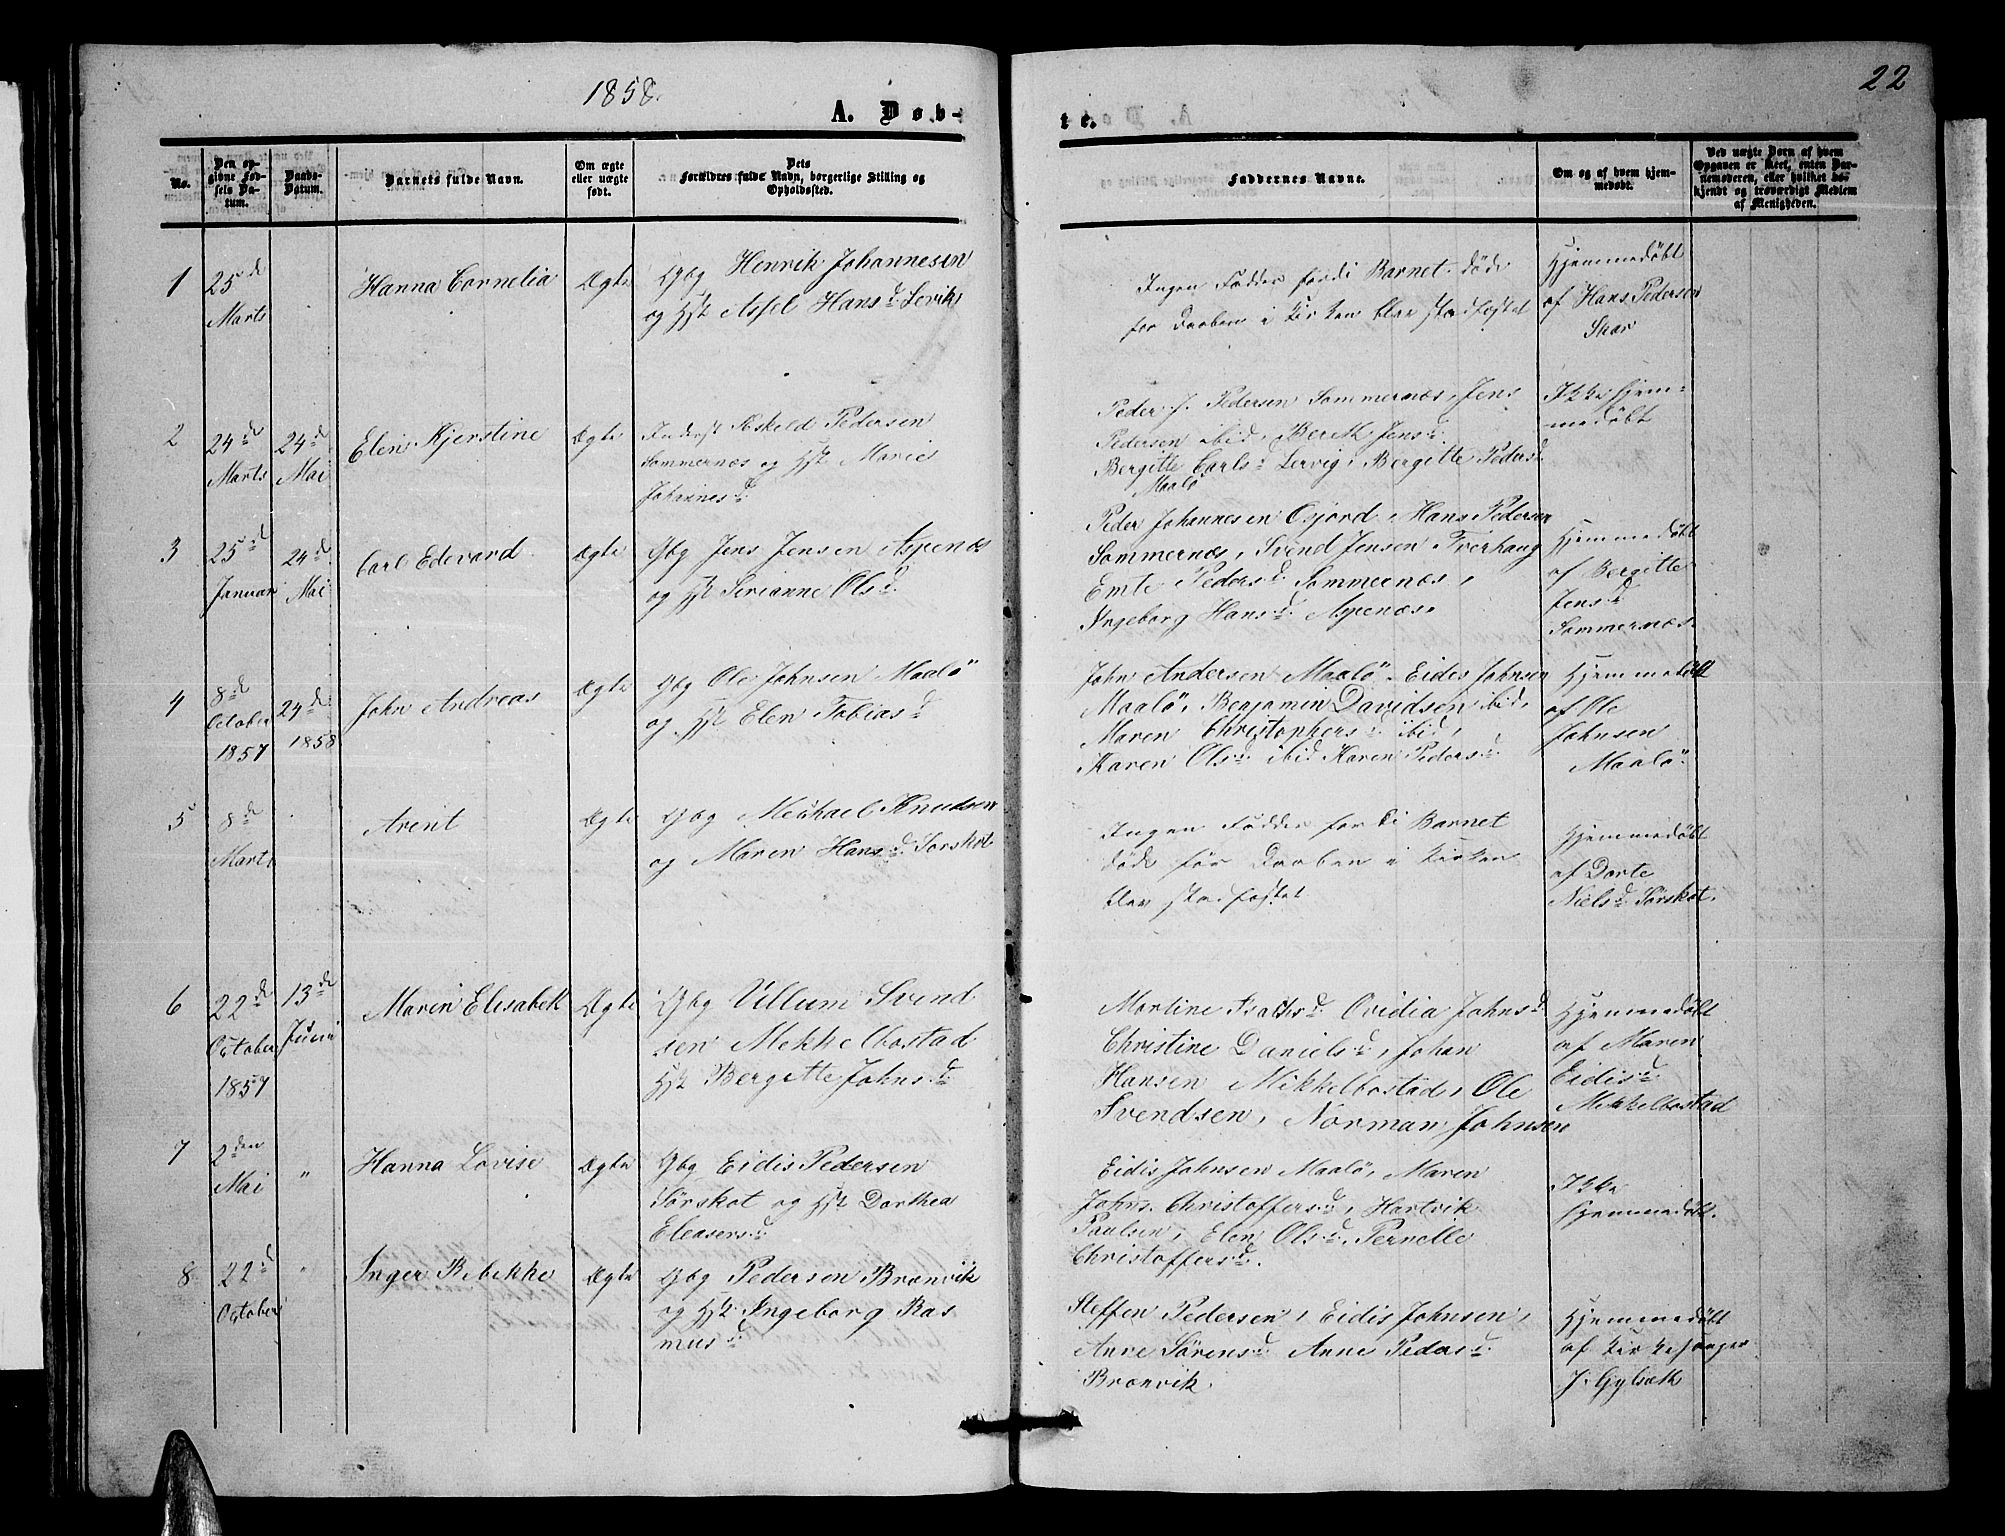 1858.
22
A. Døb-
te.
No.
Den op-
givne Fød-
sels Da-
tum.
Daabs-
Datum.
Barnets fulde Navn.
Om ægte
eller uægte
født.
Dets
Forældres fulde Navn, borgerlige Stilling og
Opholdssted.
Faddernes Navne.
Om og af hvem hjem-
medøbt.
Ved uægte Børn af hvem
Opgaven er skeet, enten Bar-
nemoderen, eller hvilket be-
kjendt og troværdigt Medlem
af Menigheden.
1
25de
Marts
Hanna Cornelia
Ægte
Gbg Henrik Johannesen
og Hst Assel Hansd Lervik
Ingen Fadder fordi Barnet døde
før Daaben i Kirken blev stadfæstet
Hjemmedöbt
af Hans Pedersen
Skar
2
24d
Marts
24d
Mai
Elen Kjerstine
Ægte
Inderst Askeld Pedersen
Sommernæs og Hst Maries
Johannesd
Peder J. Pedersen Sommernæs, Jens
Pedersen ibid, Berith Jensd.
Bergitte Carlsd Lervig, Bergitte Pedersd
Maalö
Ikke hjem-
medöbt
3
25d
Januar
24d
Mai
Carl Edevard
Ægte
Gbg Jens Jensen Aspenæs
og Hst Serianne Olsd.
Peder Johannesen Osjord, Hans Pedersen
Sommernæs, Svend Jensen Tverhaug
Emte Pedersd. Sommernæs,
Ingeborg Hansd. Aspenæs.
Hjemmedöbt
af Bergitte
Jensd
Sommernæs.
4
8d
October
1857
24d
1858
John Andreas
Ægte
Gbg Ole Johnsen Maalö
og Hst Elen Tobiasd
John Andersen Maalö. Eidis Johnsen
Maalö, Benjamin Davidsen ibid,
Maren Christophersd ibid,
Karen Olsd ibid Karen Pedersd
Hjemmedöbt
af Ole
Johnsen
Maalö.
5
8de
Marts
Arent
Ægte
Gbg Michael Knudsen
og Maren Hansd Sørskot
Ingen Fadder fordi Barnet
døde før Daaben i Kirken
blev stadfæstet
Hjemmedöbt
af Dorte
Nielsd Sörskot.
6
22de
October
1857
13de
Juni
Maren Elisabeth
Ægte
Gbg Villum Svend
sen Mekkelbostad
Hst Bergitte Johnsd
Martine Isaksd. Ovidia Johnsd
Christine Danielsd, Johan
Hansen Mikkelbostad, Ole
Svendsen, Norman Johnsen
Hjemmedöbt
af Maren
Eidisd
Mikkelbostad
7
2den
Mai
"
Hanna Lovise
Ægte
Gbg Eidis Pedersen
Sörskot og Hst Dorthea
Eleasersd
Eidis Johnsen Maalö, Maren
Johns. Christoffersd, Hartvik
Paulsen, Elen Olsd, Pernelle
Christoffersd.
Ikke
hjemmedöbt.
8
22d
October
"
Inger Rebekke
Ægte
Gbg Pedersen Brænvik
og Hst Ingeborg Ras
musd
Steffen Pedersen, Eidis Johnsen,
Anne Sörensd Anne Pedersd.
Brænvik.
Hjemmedöbt
af Kirkesanger
J. Gylseth